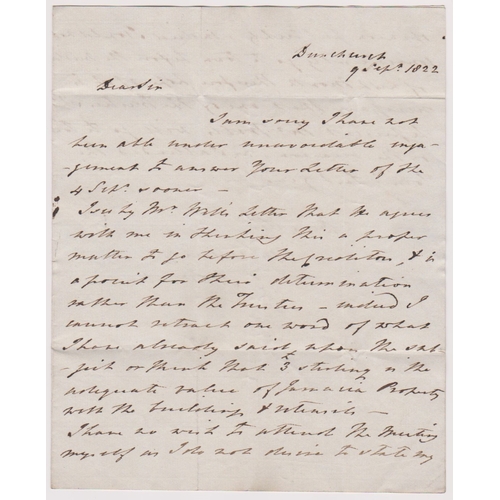 Dunchurch
9 Sepr. 1822
Dear Sir
I am sorry I have not
been able under unavoidable inga-
-gement to answer Your Letter of the
4 Sepr. sooner -
I see by Mr. Wells Letter that he agrees
with me in thinking this a proper
matter to go before the Creditors, & is
a point for their determination
rather than the Trustees - indeed I
cannot retract one word of what
I have already said upon the sub-
-ject or think that 3 sterling is the
adequate value of Jamaica Property
with the buildings & utensils -
I have no wish to attend the Meeting
myself as I do not desire to state my